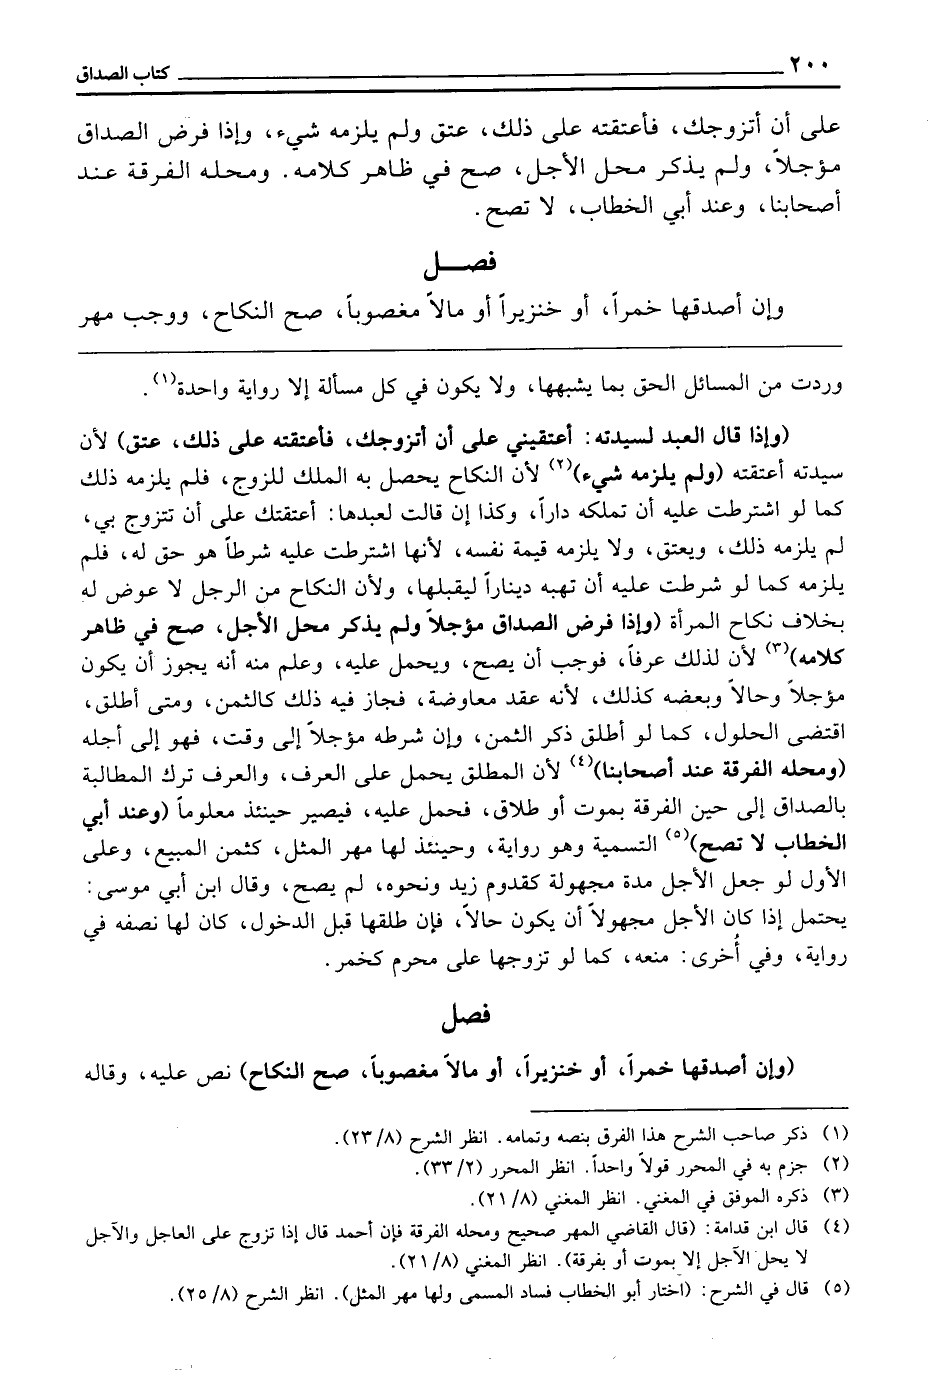 ٢٠٠ كتاب الصداق
على أن أتزوجك، فأعتقته على ذلك، عتق ولم يلزمه شيء، وإذا فرض الصداق
مؤجلاً، ولم يذكر محل الأجل، صح في ظاهر كلامه. ومحله الفرقة عند
أصحابنا، وعند أبي الخطاب، لا تصح.
فصـــل
وإن أصدقها خمراً، أو خنزيراً أو مالاً مغصوباً، صح النكاح، ووجب مهر
وردت من المسائل الحق بما يشبهها، ولا يكون في كل مسألة إلا رواية واحدة(١).
(وإذا قال العبد لسيدته: أعتقيني على أن أتزوجك، فأعتقته على ذلك، عتق) لأن
سيدته أعتقته (ولم يلزمه شيء)(٢) لأن النكاح يحصل به الملك للزوج، فلم يلزمه ذلك
كما لو اشترطت عليه أن تملكه داراً، وكذا إن قالت لعبدها: أعتقتك على أن تتزوج بي،
لم يلزمه ذلك، ويعتق، ولا يلزمه قيمة نفسه، لأنها اشترطت عليه شرطاً هو حق له، فلم
يلزمه كما لو شرطت عليه أن تهبه ديناراً ليقبلها، ولأن النكاح من الرجل لا عوض له
بخلاف نكاح المرأة (وإذا فرض الصداق مؤجلاً ولم يذكر محل الأجل، صح في ظاهر
كلامه)(٣) لأن لذلك عرفاً، فوجب أن يصح، ويحمل عليه، وعلم منه أنه يجوز أن يكون
مؤجلاً وحالاً وبعضه كذلك، لأنه عقد معاوضة، فجاز فيه ذلك كالثمن، ومتى أطلق،
اقتضى الحلول، كما لو أطلق ذكر الثمن، وإن شرطه مؤجلاً إلى وقت، فهو إلى أجله
(ومحله الفرقة عند أصحابنا)(٤) لأن المطلق يحمل على العرف، والعرف ترك المطالبة
بالصداق إلى حين الفرقة بموت أو طلاق، فحمل عليه، فيصير حينئذ معلوماً (وعند أبي
الخطاب لا تصح)(٥) التسمية وهو رواية، وحينئذ لها مهر المثل، كثمن المبيع، وعلى
الأول لو جعل الأجل مدة مجهولة كقدوم زيد ونحوه، لم يصح، وقال ابن أبي موسى:
يحتمل إذا كان الأجل مجهولاً أن يكون حالاً، فإن طلقها قبل الدخول، كان لها نصفه في
رواية، وفي أُخرى: منعه، كما لو تزوجها على محرم كخمر.
فصل
(وإن أصدقها خمراً، أو خنزيراً، أو مالاً مغصوباً، صح النكاح) نص عليه، وقاله
(١) ذكر صاحب الشرح هذا الفرق بنصه وتمامه. انظر الشرح (٢٣/٨).
(٢) جزم به في المحرر قولاً واحداً. انظر المحرر (٣٣/٢).
(٣) ذكره الموفق في المغني. انظر المغني (٢١/٨).
(٤) قال ابن قدامة: (قال القاضي المهر صحيح ومحله الفرقة فإن أحمد قال إذا تزوج على العاجل والآجل
لا يحل الآجل إلا بموت أو بفرقة). انظر المغني (٢١/٨).
(٥) قال في الشرح: (اختار أبو الخطاب فساد المسمى ولها مهر المثل). انظر الشرح (٢٥/٨).